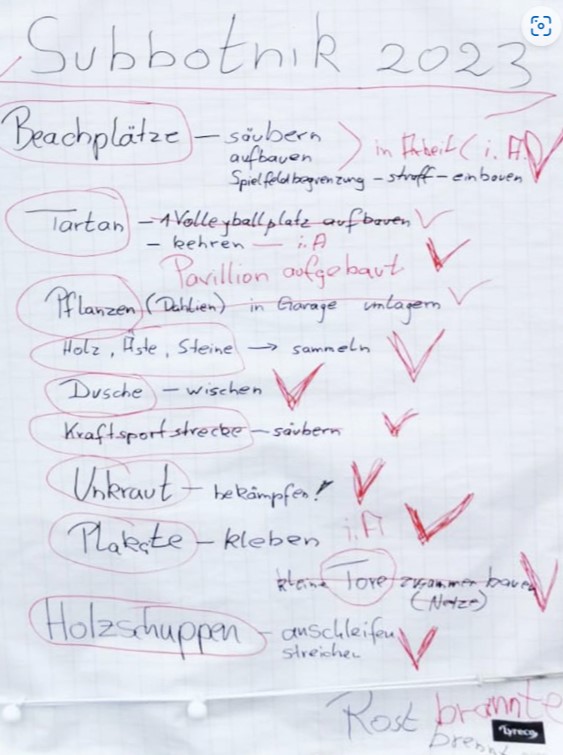 Subbotnik 2023
Beachplätze – säubern
aufbauen
in Arbeit (i. A.)
Spielfeldbegrenzung – straff – einbauen
Tartan – 1 Volleyballplatz aufbauen
– kehren — i. A
Pavillion aufgebaut
Pflanzen (Dahlien) in Garage umlagern
Holz, Äste, Steine → sammeln
Dusche – wischen
Kraftsportstrecke – säubern
Unkraut – bekämpfen!
Plakate – kleben i. A
kleine Tore zusammen bauen
(Netze)
Holzschuppen – anschleifen
streichen
Rost brannte
lyreco